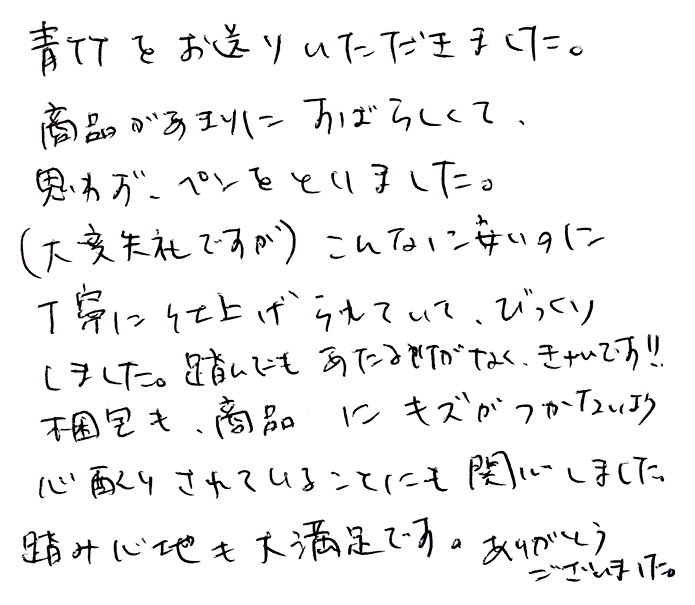 青竹をお送りいただきました。
商品があまりにすばらしくて、
思わず、ペンをとりました。
(大変失礼ですが) こんなに安いのに
丁寧に仕上げられていて、びっくり
しました。踏んでも あたる所がなく、きれいです!!
梱包も、商品 にキズがつかないよう
心配りされていることにも関心しました。
踏み心地も大満足です。ありがとう
ございました。